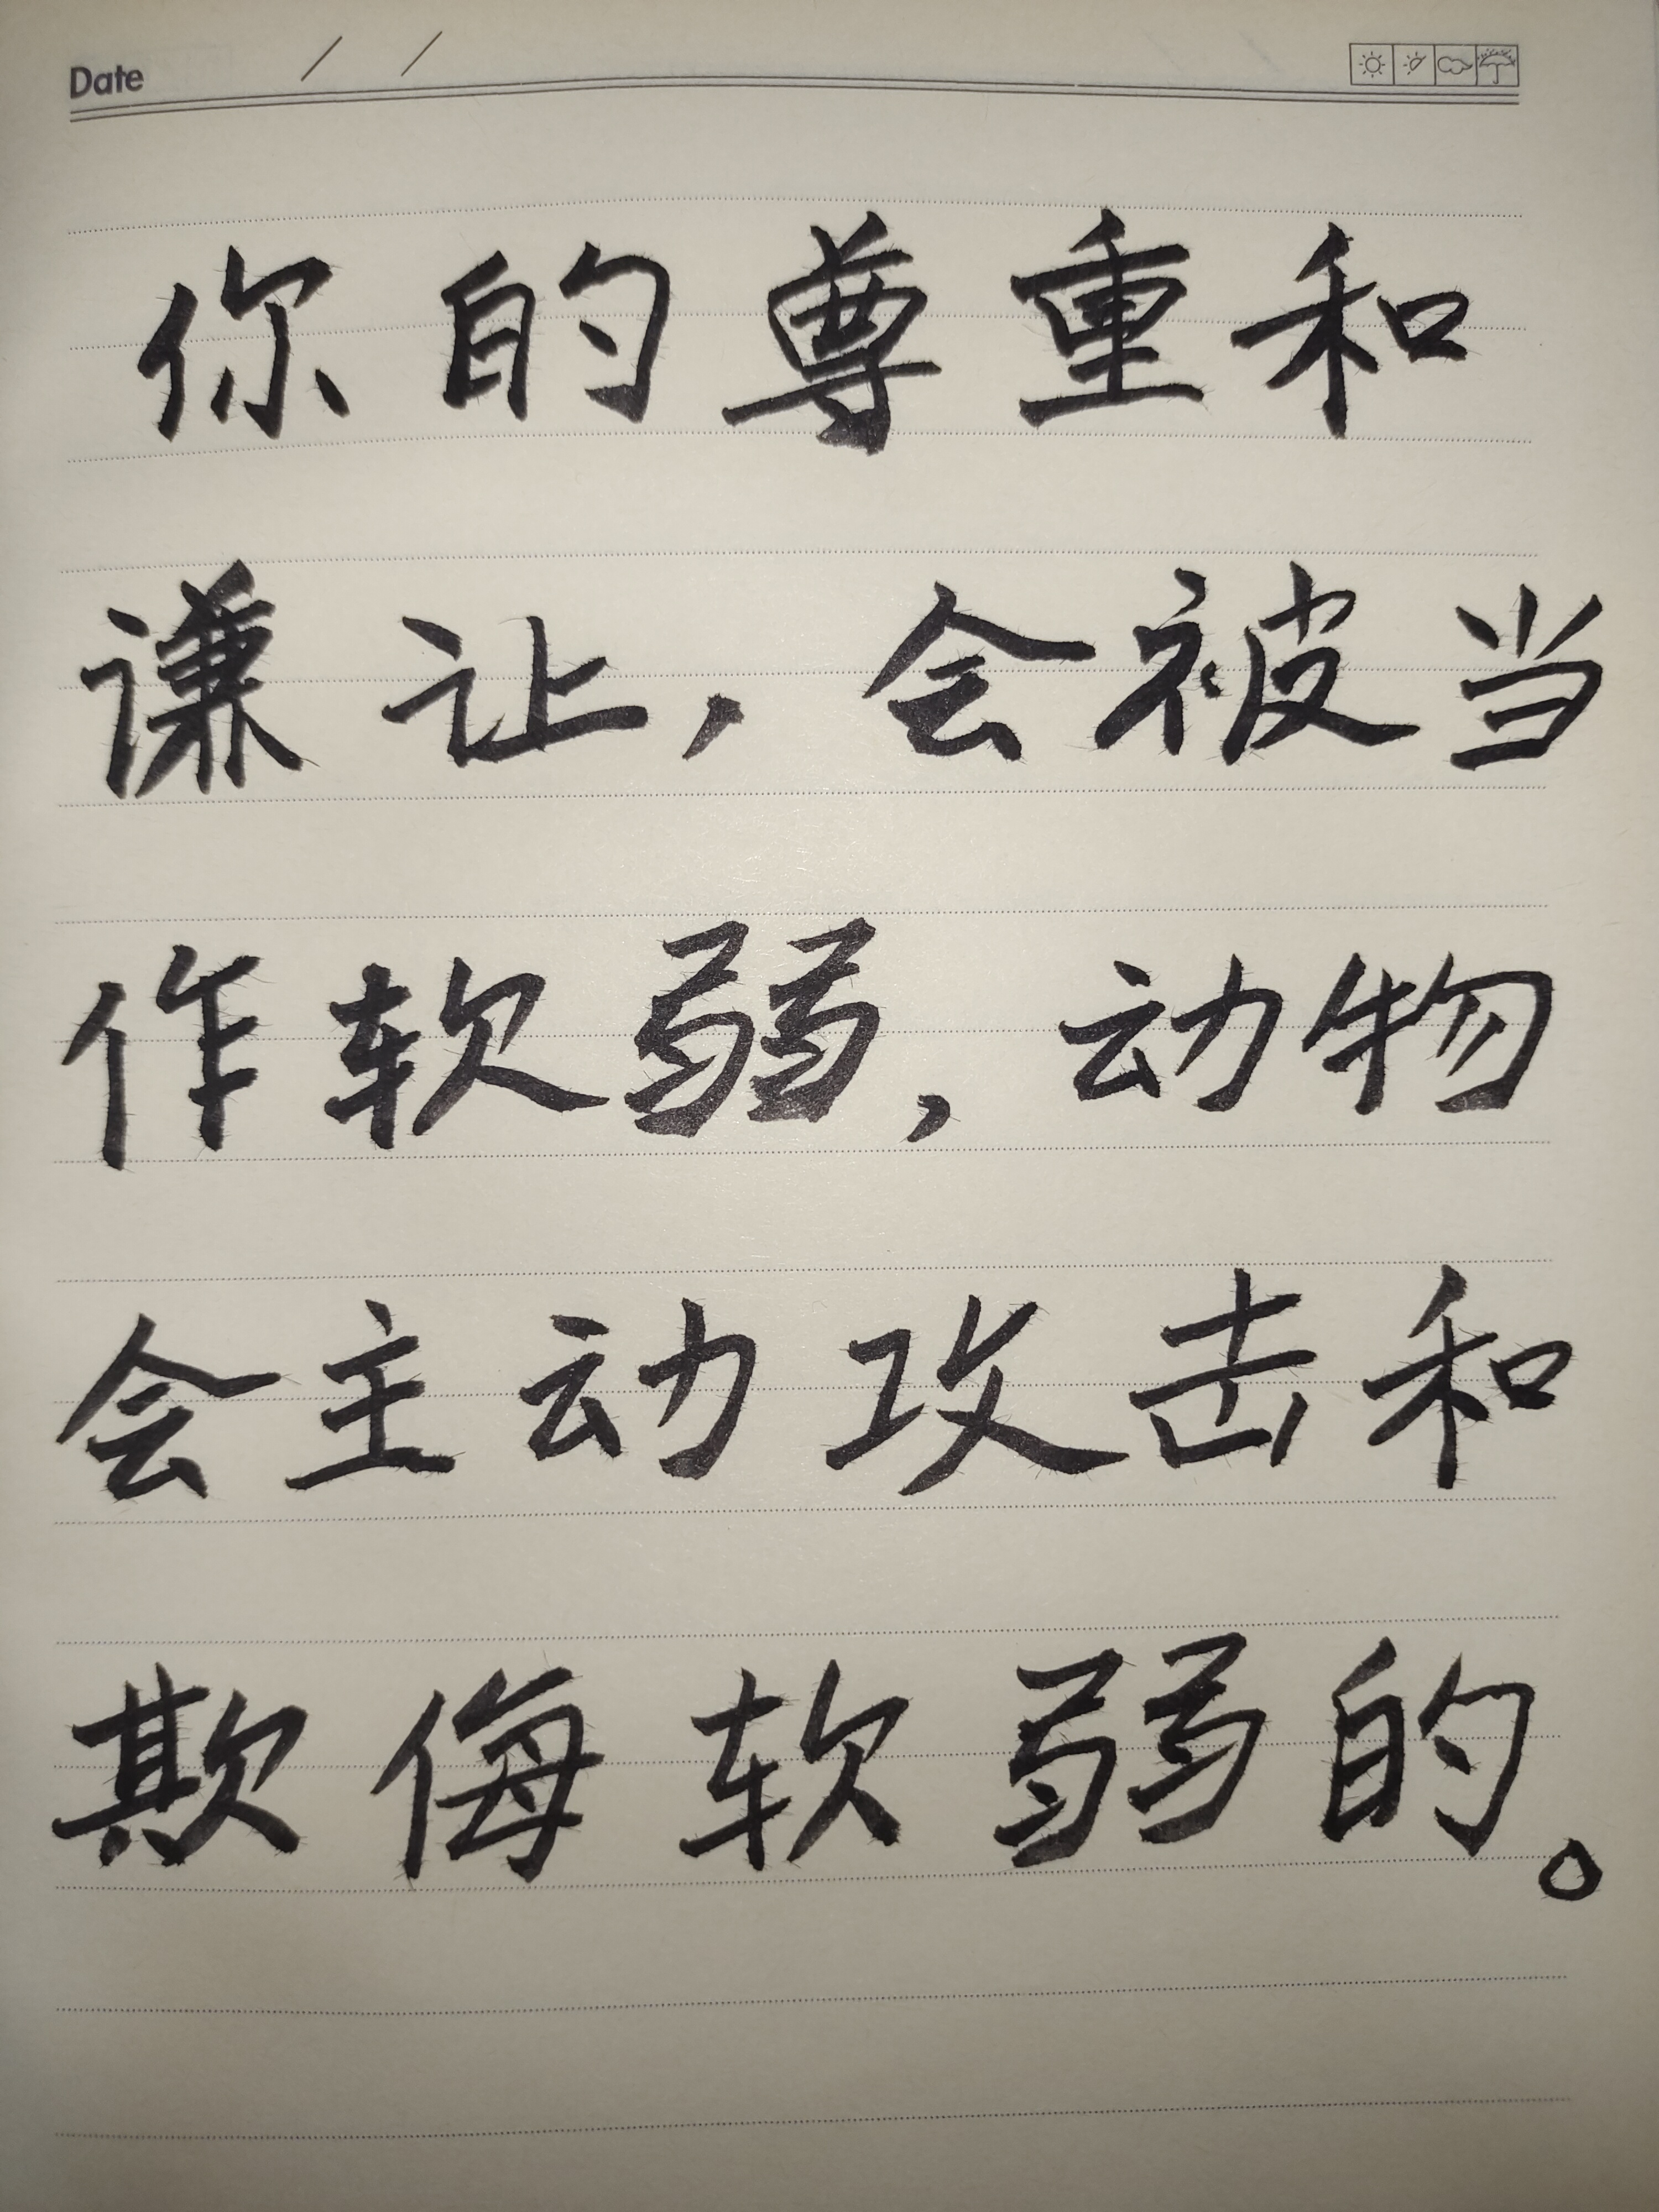 Date / /
你的尊重和
谦让，会被当
作软弱，动物
会主动攻击和
欺侮软弱的。